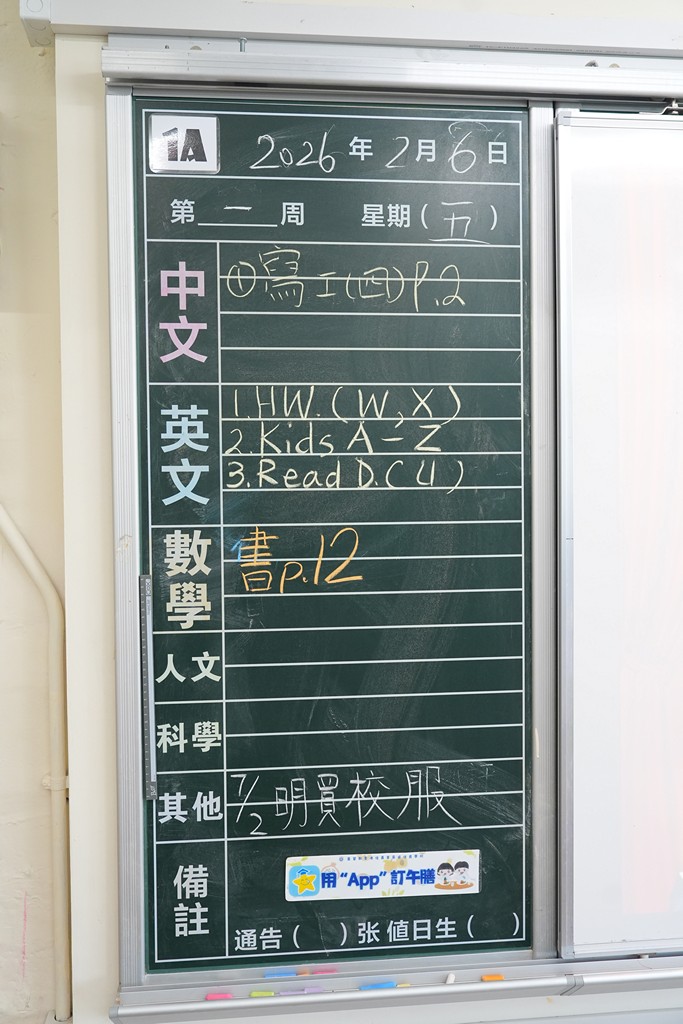 1A 2026年2月6日
第一周 星期(五)
中文
①寫工(四)P.2
英文
1.HW.(W,X)
2.Kids A-Z
3.Read D.(U)
數學
書p.12
人文
科學
其他
7/2 明買校服
備註
用“App”訂午膳
通告( )张 值日生( )